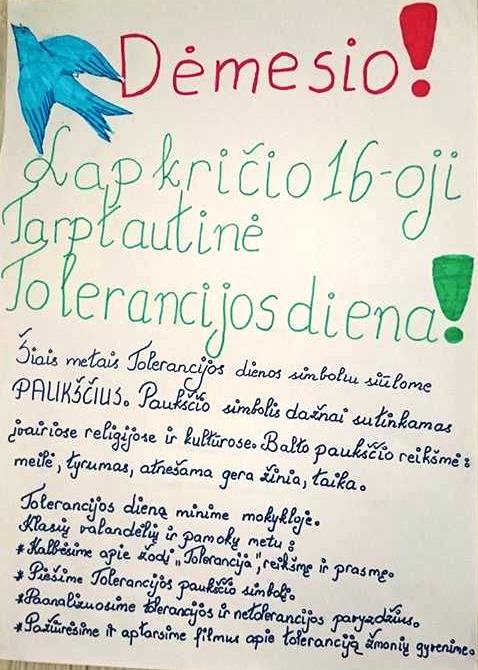 Dėmesio!
Lapkričio 16-oji
Tarptautinė
Tolerancijos diena!
Šiais metais Tolerancijos dienos simboliu siūlome
PAUKŠČIUS. Paukščio simbolis dažnai sutinkamas
įvairiose religijose ir kultūrose. Balto paukščio reikšmė:
meilė, tyrumas, atnešama gera žinia, taika.
Tolerancijos dieną minime mokykloje.
Klasių valandėlių ir pamokų metu:
*Kalbėsime apie žodį „Tolerancija", reikšmę ir prasmę.
*Piešime Tolerancijos paukščio simbolį.
*Paanalizuosime tolerancijos ir netolerancijos pavyzdžius.
*Pažiūrėsime ir aptarsime filmus apie toleranciją žmonių gyvenime.